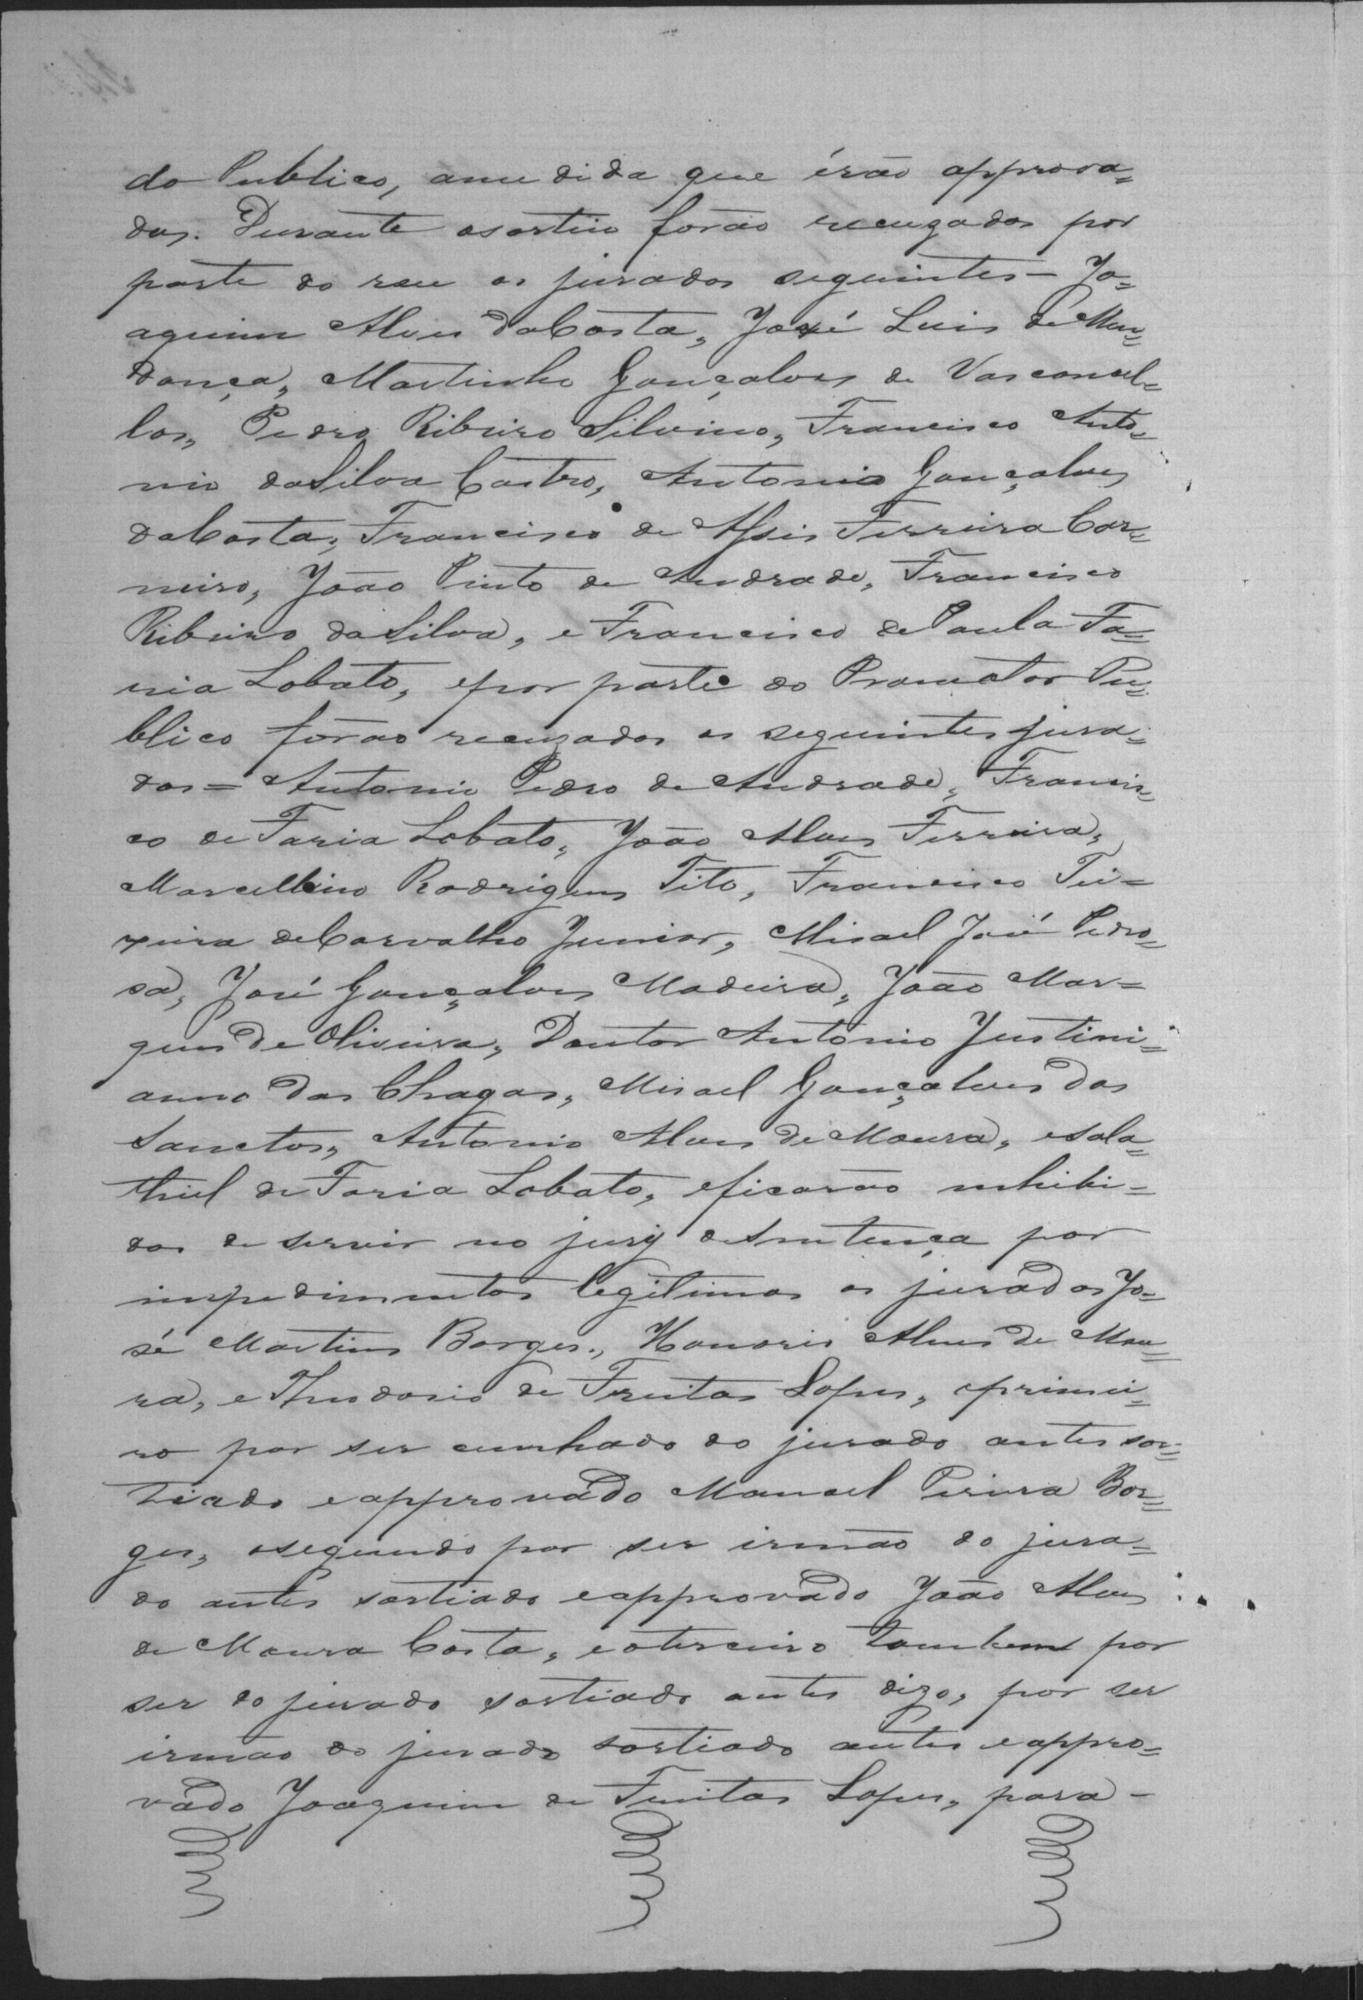 do Publico, amedida que érão approva=
dos. Durante osorteio forão recuzados por
parte do reu os jurados seguintes – Jo=
aquim Alves daCosta, José Luis de Men=
donça, Martinho Gonçalves de Vasconcel=
los, Pedro Ribeiro Silvino, Francisco Anto=
nio daSilva Castro, Antonio Gonçalves
daCosta, Francisco de Assis Ferreira Car=
neiro, João Pinto de Andrade, Francisco
Ribeiro daSilva, e Francisco dePaula Fa=
ria Lobato, epor parte do Promotor Pu=
blico forão recuzados os seguintes jura=
dos = Antonio Pedro de Andrade, Francis=
co de Faria Lobato, João Alves Ferreira,
Marcellino Rodrigues Tito, Francisco Tei=
xeira deCarvalho Junior, Misael José Pedro=
sa, José Gonçalves Madeira, João Mar=
ques de Oliveira, Doutor Antonio Justini=
anno das Chagas, Misael Gonçalves dos
Sanctos, Antonio Alves de Moura, esala=
thiel de Faria Lobato, eficarão inhibi=
dos de servir no jury deSentença por
impedimentos legitimos os jurados Jo=
sé Martins Borges, Honorio Alves de Mou=
ra, e Theodosio de Freitas Lopes, oprimei=
ro por ser cunhado do jurado antes sor=
tiado eapprovado Manoel Pereira Bor=
ges, osegundo por ser irmão do jura=
do antes sortiado eapprovado João Alves
de Moura Costa, eoterceiro tambem por
ser do jurado sortiado antes digo, por ser
irmão do jurado sortiado antes eappro=
vado Joaquim de Freitas Lopes, para –